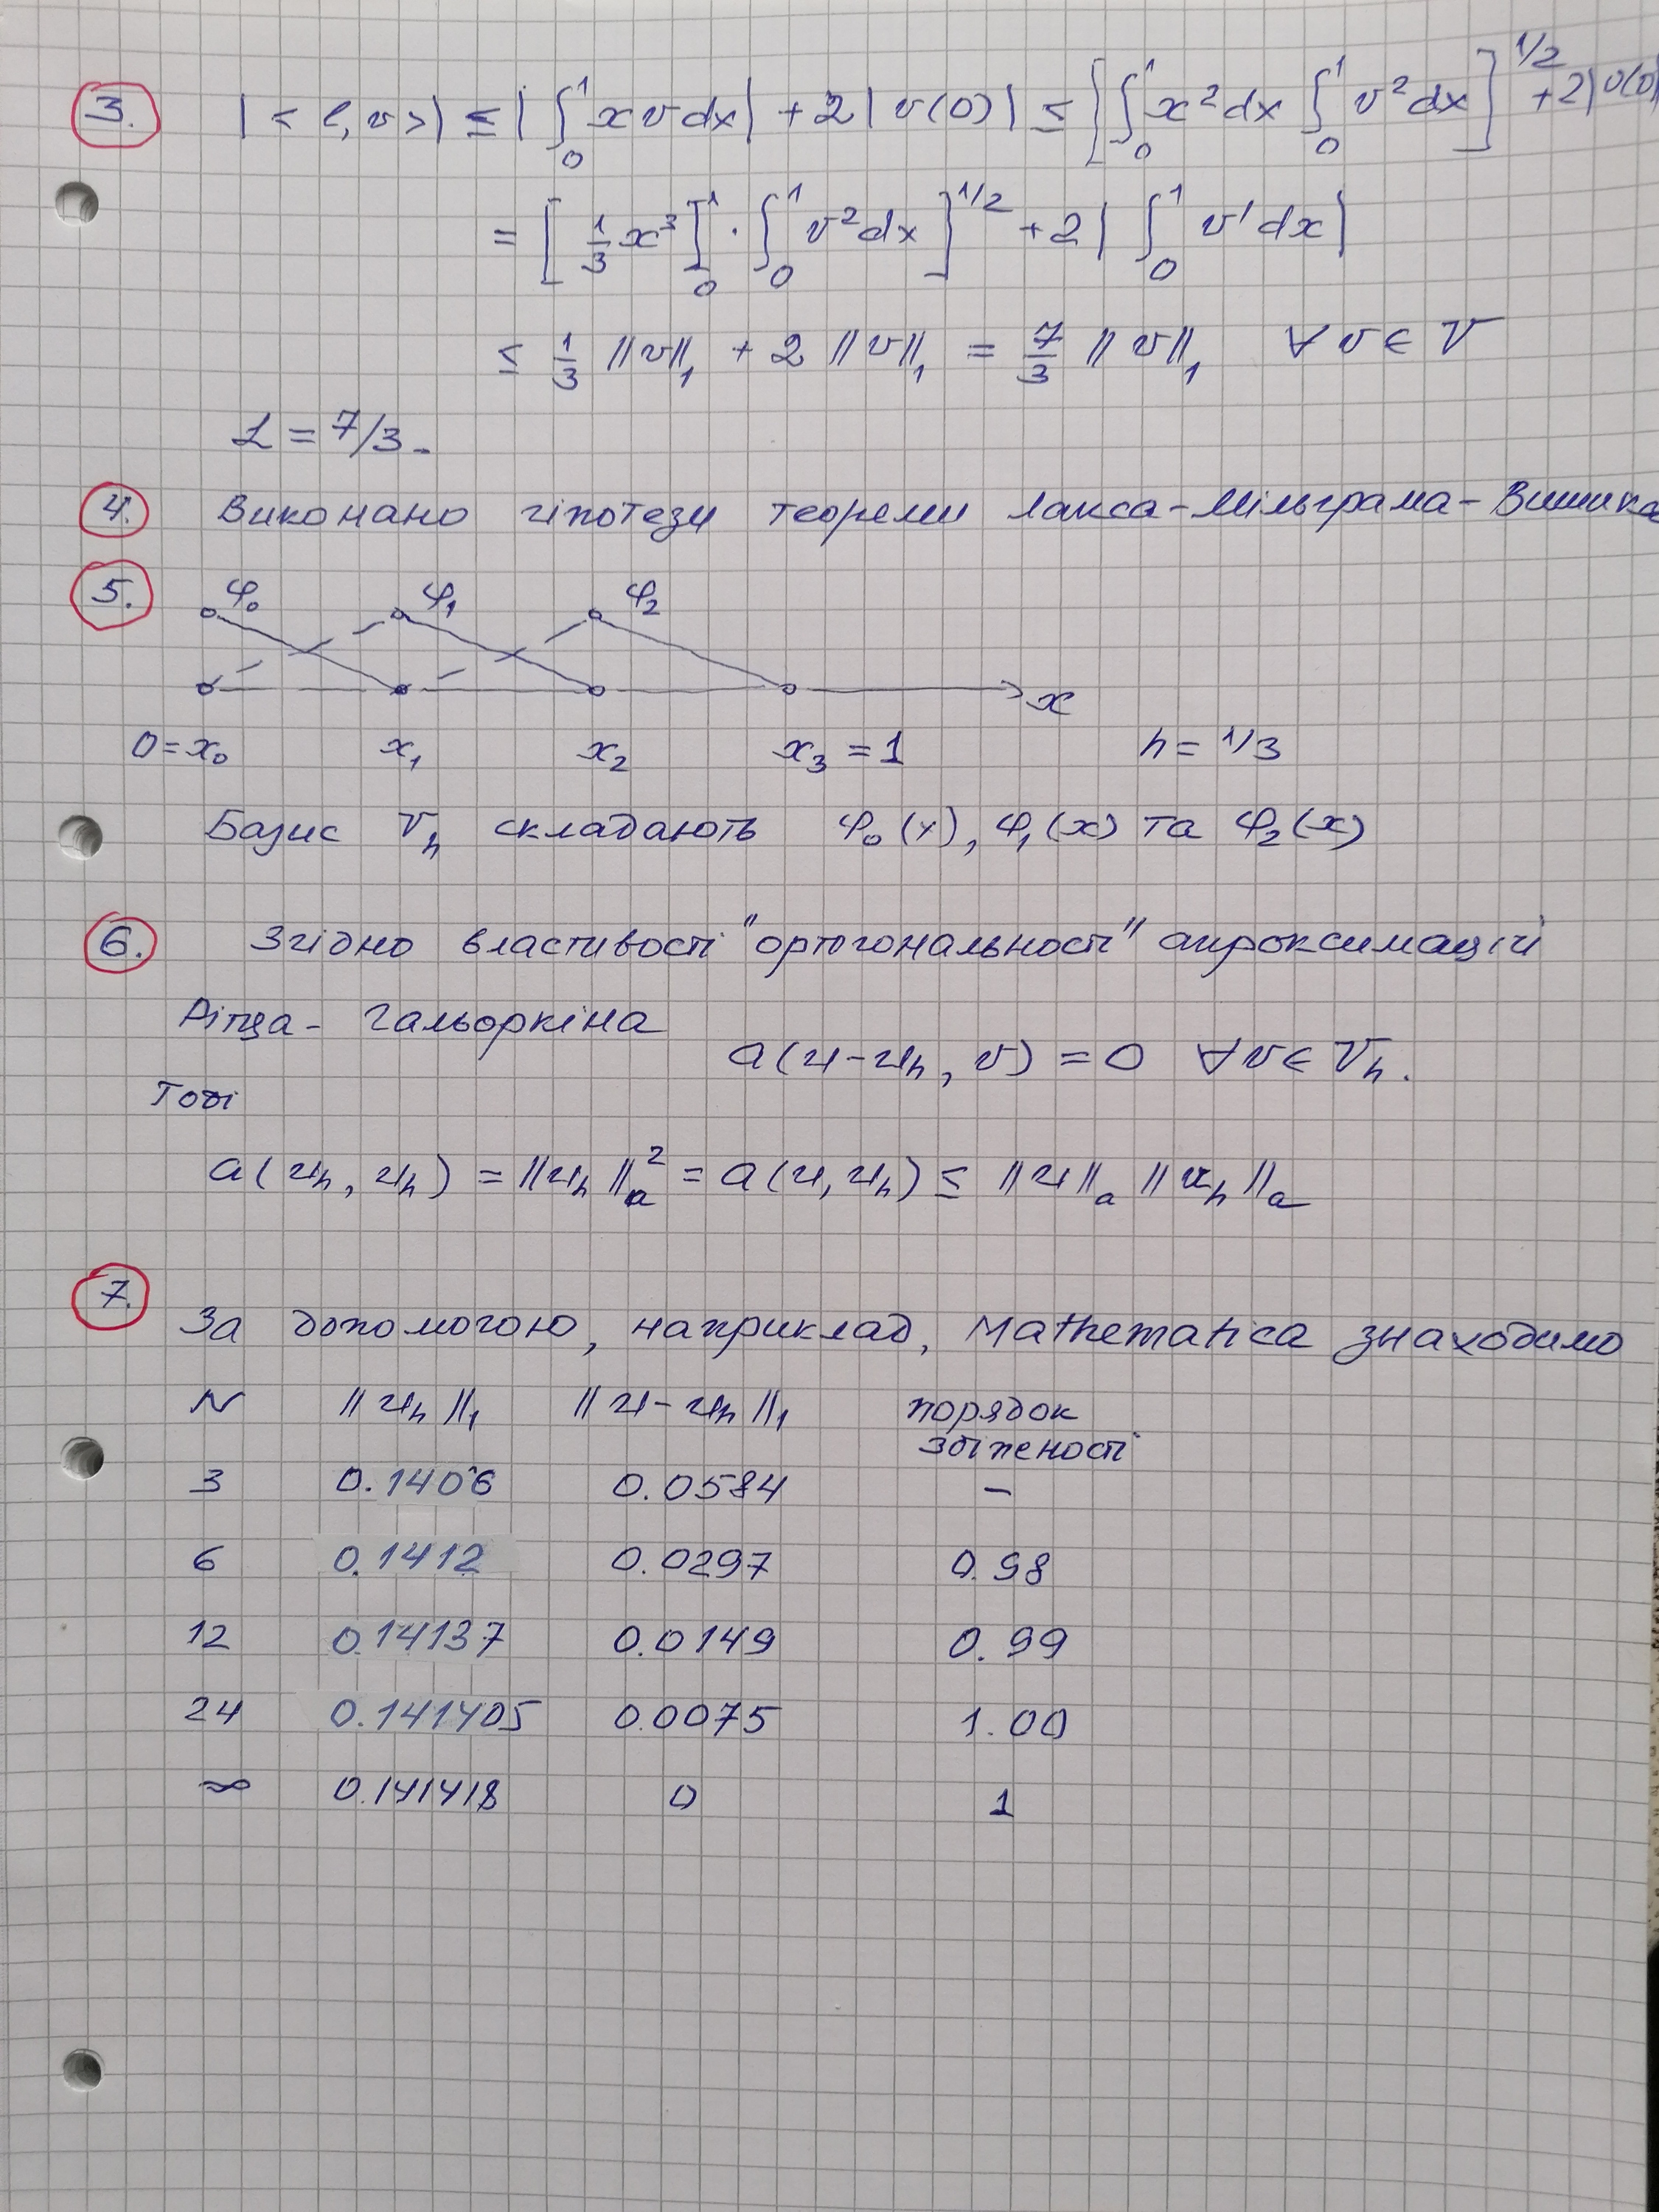 3. |<l,v>| ≤ |∫₀¹ x v dx| + 2|v(0)| ≤ [∫₀¹ x² dx ∫₀¹ v² dx]^{1/2} + 2|v(0)
= [1/3 x³]₀¹ · ∫₀¹ v² dx]^{1/2} + 2|∫₀¹ v' dx|
≤ 1/3 ‖v‖₁ + 2 ‖v‖₁ = 7/3 ‖v‖₁ ∀ v ∈ V
L = 7/3.
4. Виконано гіпотези теореми Лакса-Мільграма-Вишика
5. φ₀ φ₁ φ₂
x
0 = x₀ x₁ x₂ x₃ = 1 h = 1/3
Базис Vₕ складають φ₀(x), φ₁(x) та φ₂(x)
6. Згідно властивості "ортогональності" апроксимацій
Рітца - Гальоркіна
a(u-uₕ, v) = 0 ∀v ∈ Vₕ.
Тоді
a(uₕ, uₕ) = ‖uₕ‖ₐ² = a(u, uₕ) ≤ ‖u‖ₐ ‖uₕ‖ₐ
7.
За допомогою, наприклад, Mathematica знаходимо
N ‖uₕ‖₁ ‖u-uₕ‖₁ порядок
збіжності
3 0.1406 0.0584 –
6 0.1412 0.0297 0.98
12 0.14137 0.0149 0.99
24 0.141405 0.0075 1.00
∞ 0.141418 0 1